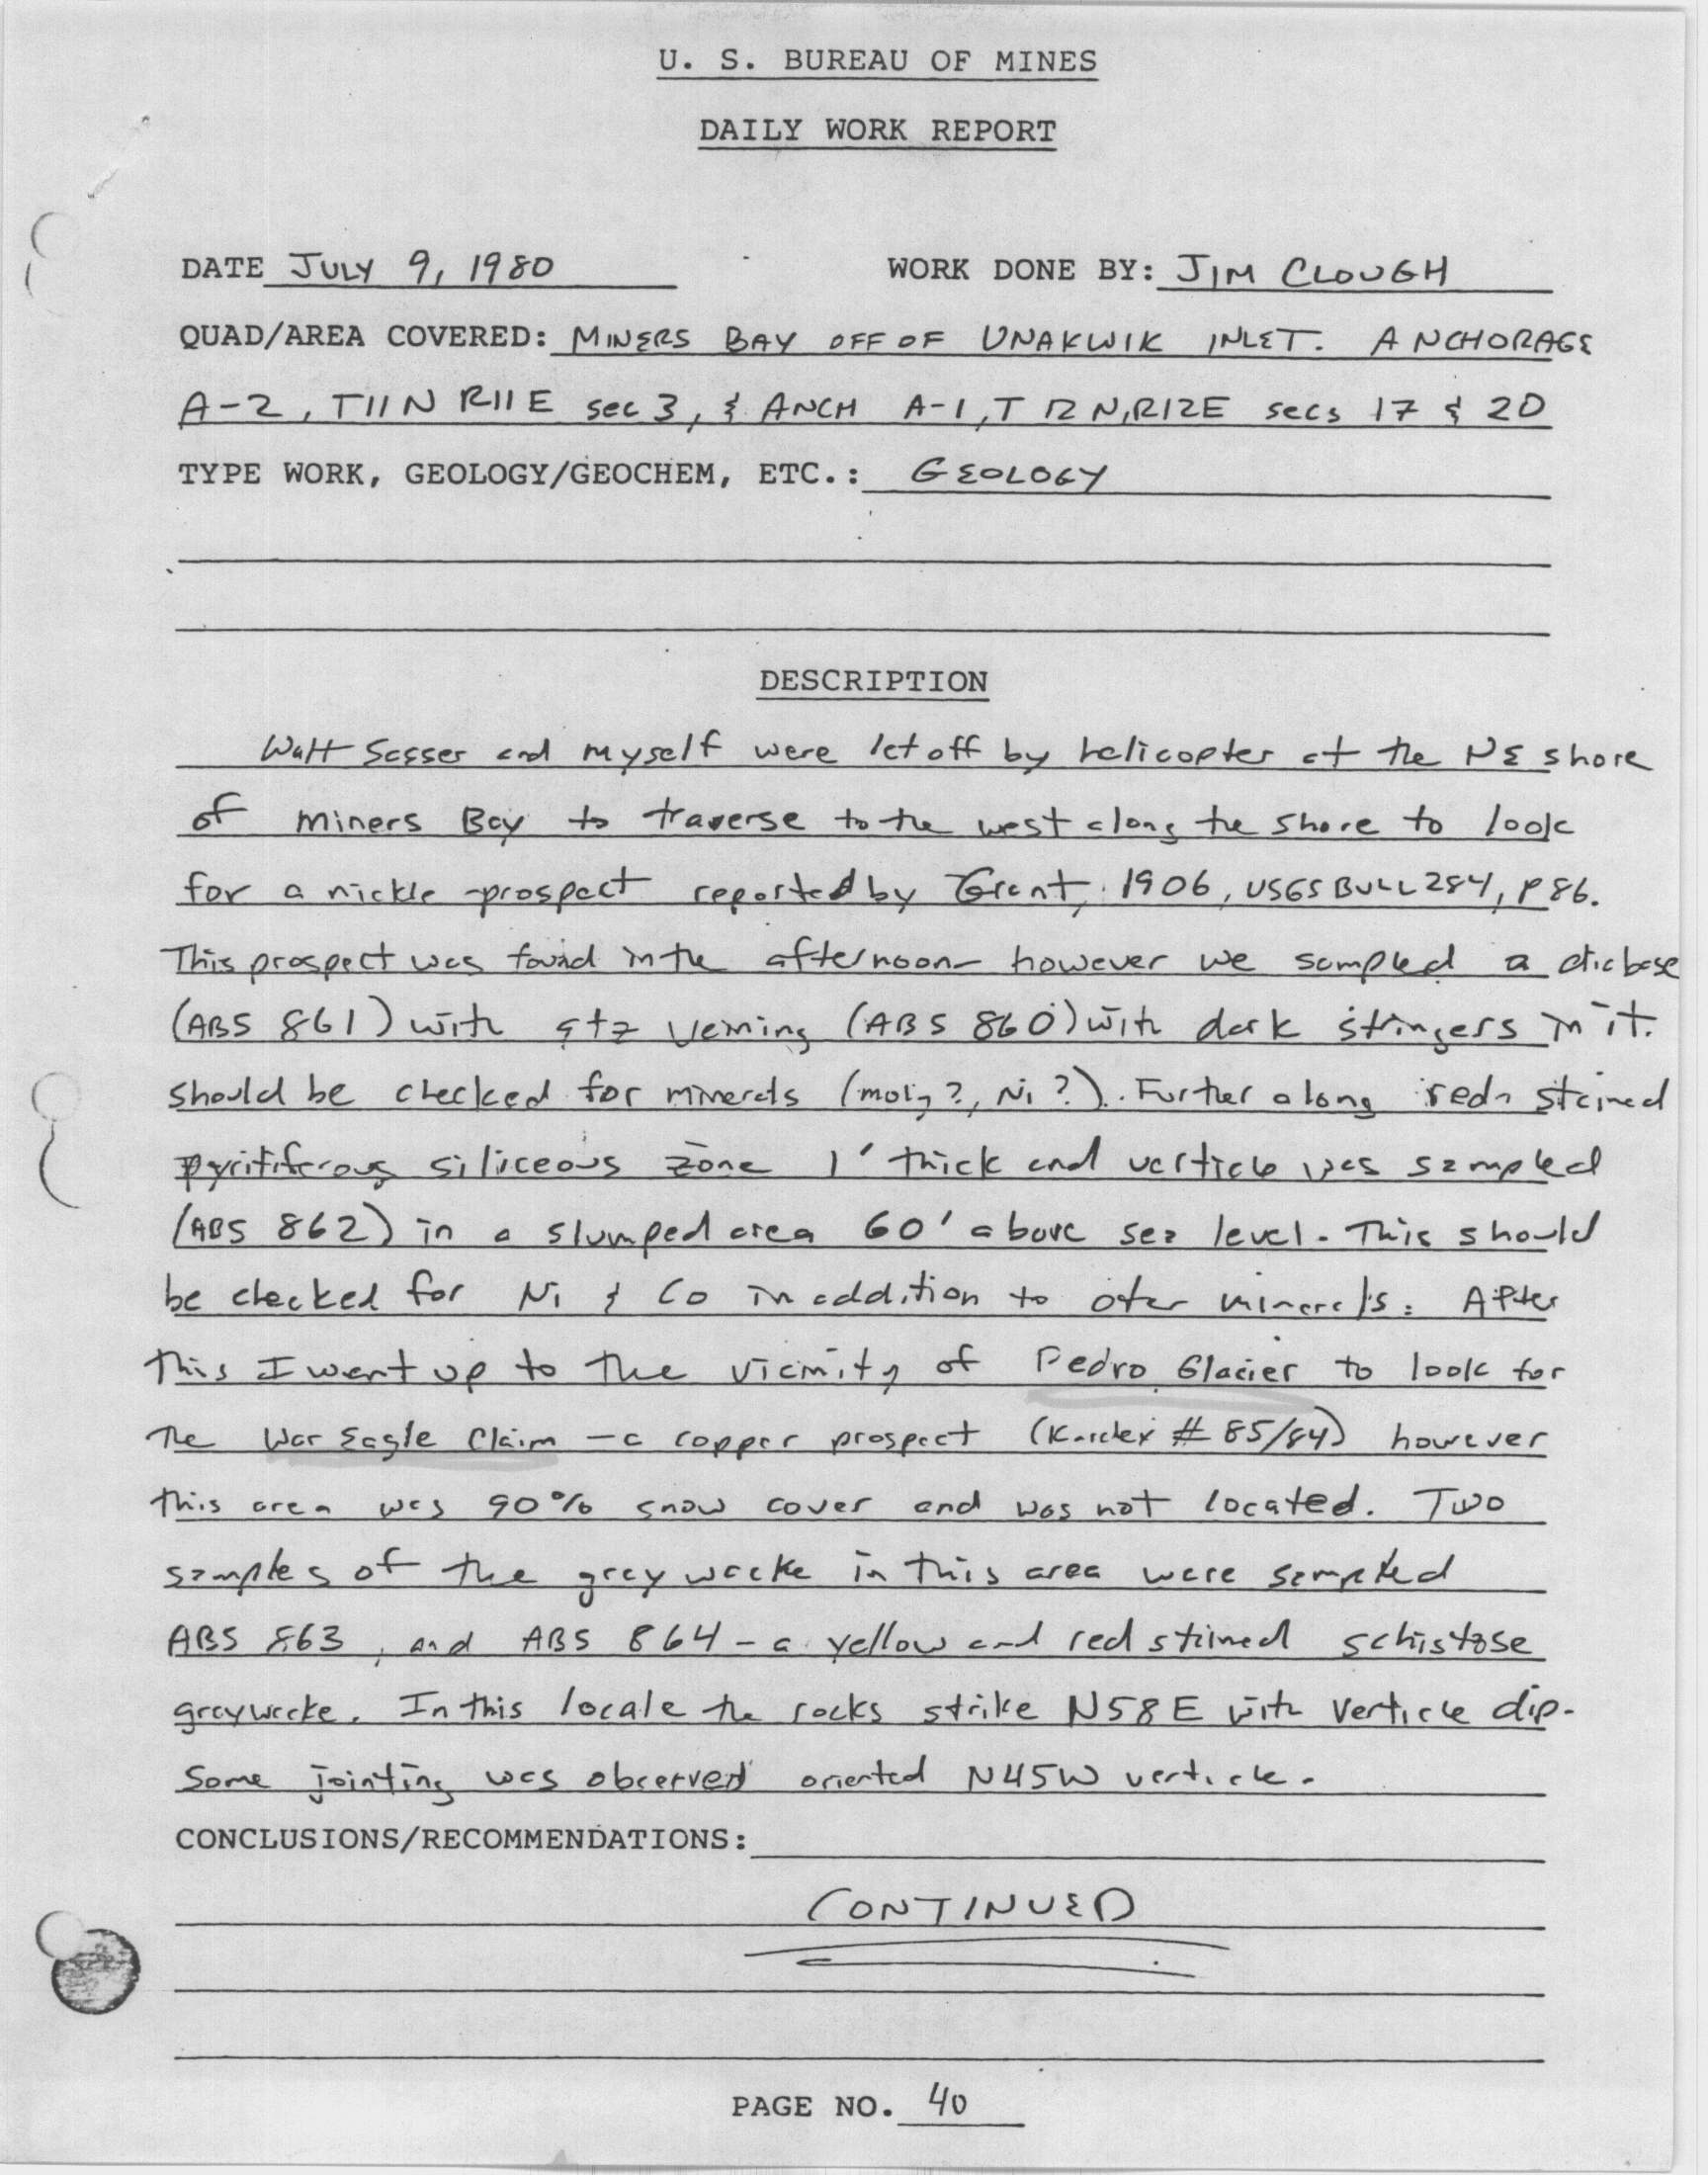 U. S. BUREAU OF MINES
DAILY WORK REPORT
DATE JULY 9, 1980 WORK DONE BY: JIM CLOUGH
QUAD/AREA COVERED: MINERS BAY OFF OF UNAKWIK INLET. ANCHORAGE
A-2, T11N R11E sec 3, & ANCH A-1, T12N, R12E secs 17 & 20
TYPE WORK, GEOLOGY/GEOCHEM, ETC.: GEOLOGY
DESCRIPTION
Walt Sasser and myself were let off by helicopter at the NE shore
of Miners Bay to traverse to the west along the shore to look
for a nickle prospect reported by Grant, 1906, USGS BULL 284, p 86.
This prospect was found in the afternoon - however we sampled a diabase
(ABS 861) with qtz veining (ABS 860) with dark stringers in it.
should be checked for minerals (moly?, Ni?). Further along red stained
pyritiferous siliceous zone 1' thick and verticle was sampled
(ABS 862) in a slumped area 60' above sea level. This should
be checked for Ni & Co in addition to other minerals. After
this I went up to the vicinity of Pedro Glacier to look for
the War Eagle Claim - a copper prospect (Kardex # 85/84) however
this area was 90% snow cover and was not located. Two
samples of the greywacke in this area were sampled
ABS 863, and ABS 864 - a yellow and red stained schistose
greywacke. In this locale the rocks strike N58E with verticle dip.
Some jointing was observed oriented N45W verticle.
CONCLUSIONS/RECOMMENDATIONS:
CONTINUED
PAGE NO. 40